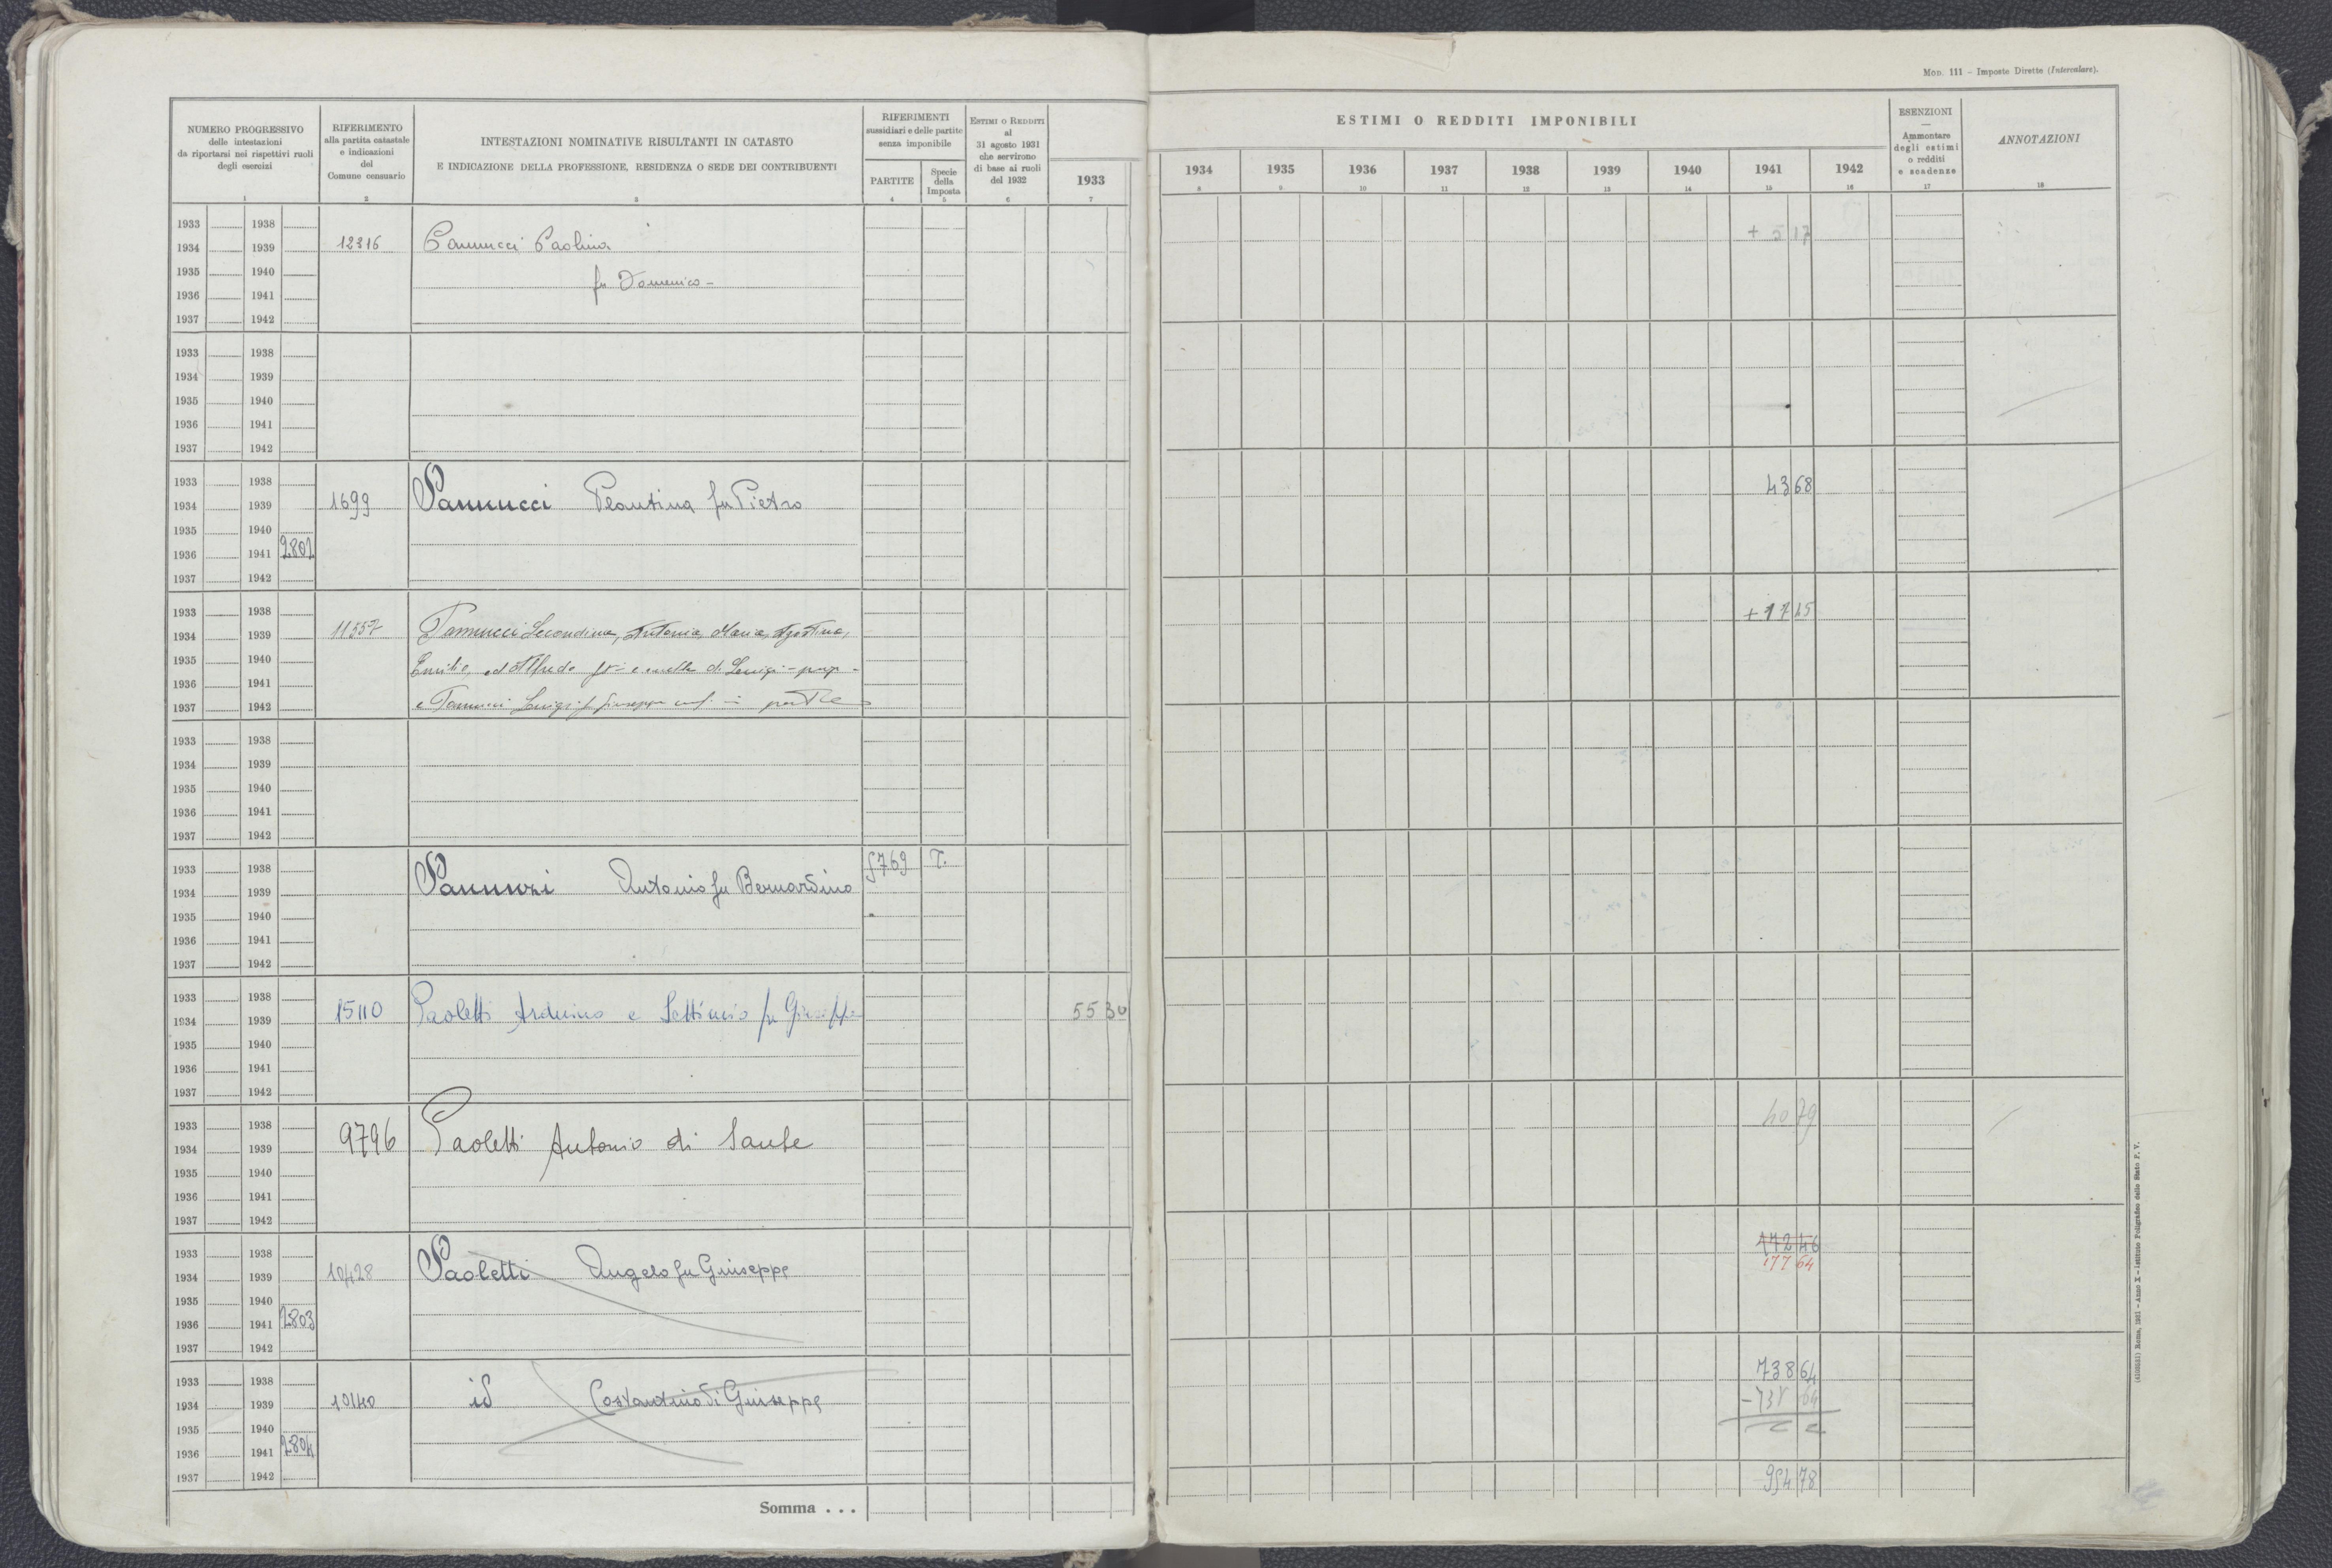 Mod. 111 - Imposte Dirette (Intercalare).
NUMERO PROGRESSIVO
delle intestazioni
da riportarsi nei rispettivi ruoli
degli esercizi
1
RIFERIMENTO
alla partita catastale
e indicazioni
del
Comune censuario
2
INTESTAZIONI NOMINATIVE RISULTANTI IN CATASTO
E INDICAZIONE DELLA PROFESSIONE, RESIDENZA O SEDE DEI CONTRIBUENTI
3
RIFERIMENTI
sussidiari e delle partite
senza imponibile
PARTITE
4
Specie
della
Imposta
5
ESTIMI O REDDITI
al
31 agosto 1931
che servirono
di base ai ruoli
del 1932
6
1933
7
ESTIMI O REDDITI IMPONIBILI
1934 1935 1936 1937 1938 1939 1940 1941 1942
8 9 10 11 12 13 14 15 16
ESENZIONI
—
Ammontare
degli estimi
o redditi
e scadenze
17
ANNOTAZIONI
18
1933 1938
1934 1939 12316 Pannucci Paolina + 5 17
1935 1940
fu Domenico -
1936 1941
1937 1942
1933 1938
1934 1939
1935 1940
1936 1941
1937 1942
1933 1938
1934 1939 1699 Pannucci Plautina fu Pietro 43 68
1935 1940
1936 1941 2802
1937 1942
1933 1938
1934 1939 11557 Pannucci Secondina, Antonia, Maria, Agostina, + 17 15
1935 1940 Emilio, ed Alfredo di Luigi - prop -
1936 1941
1937 1942 e Pannucci Luigi fu Giuseppe usuf. in parte
1933 1938
1934 1939
1935 1940
1936 1941
1937 1942
1933 1938
1934 1939 Pannuzi Antonio fu Bernardino 5769 T.
1935 1940
1936 1941
1937 1942
1933 1938
1934 1939 15110 Paoletti Arduino e Settimio fu Giuseppe 55 30
1935 1940
1936 1941
1937 1942
1933 1938
1934 1939 9796 Paoletti Antonio di Sante 40 79
1935 1940
1936 1941
1937 1942
1933 1938
1934 1939 10428 Paoletti Angelo fu Giuseppe 172 46
177 64
1935 1940
1936 1941 2803
1937 1942
1933 1938
1934 1939 10140 id Costantino di Giuseppe 738 64
- 738 64
1935 1940
1936 1941 2804
1937 1942
Somma . . . 954 78
(4109581) Roma, 1931 - Anno X - Istituto Poligrafico dello Stato P. V.